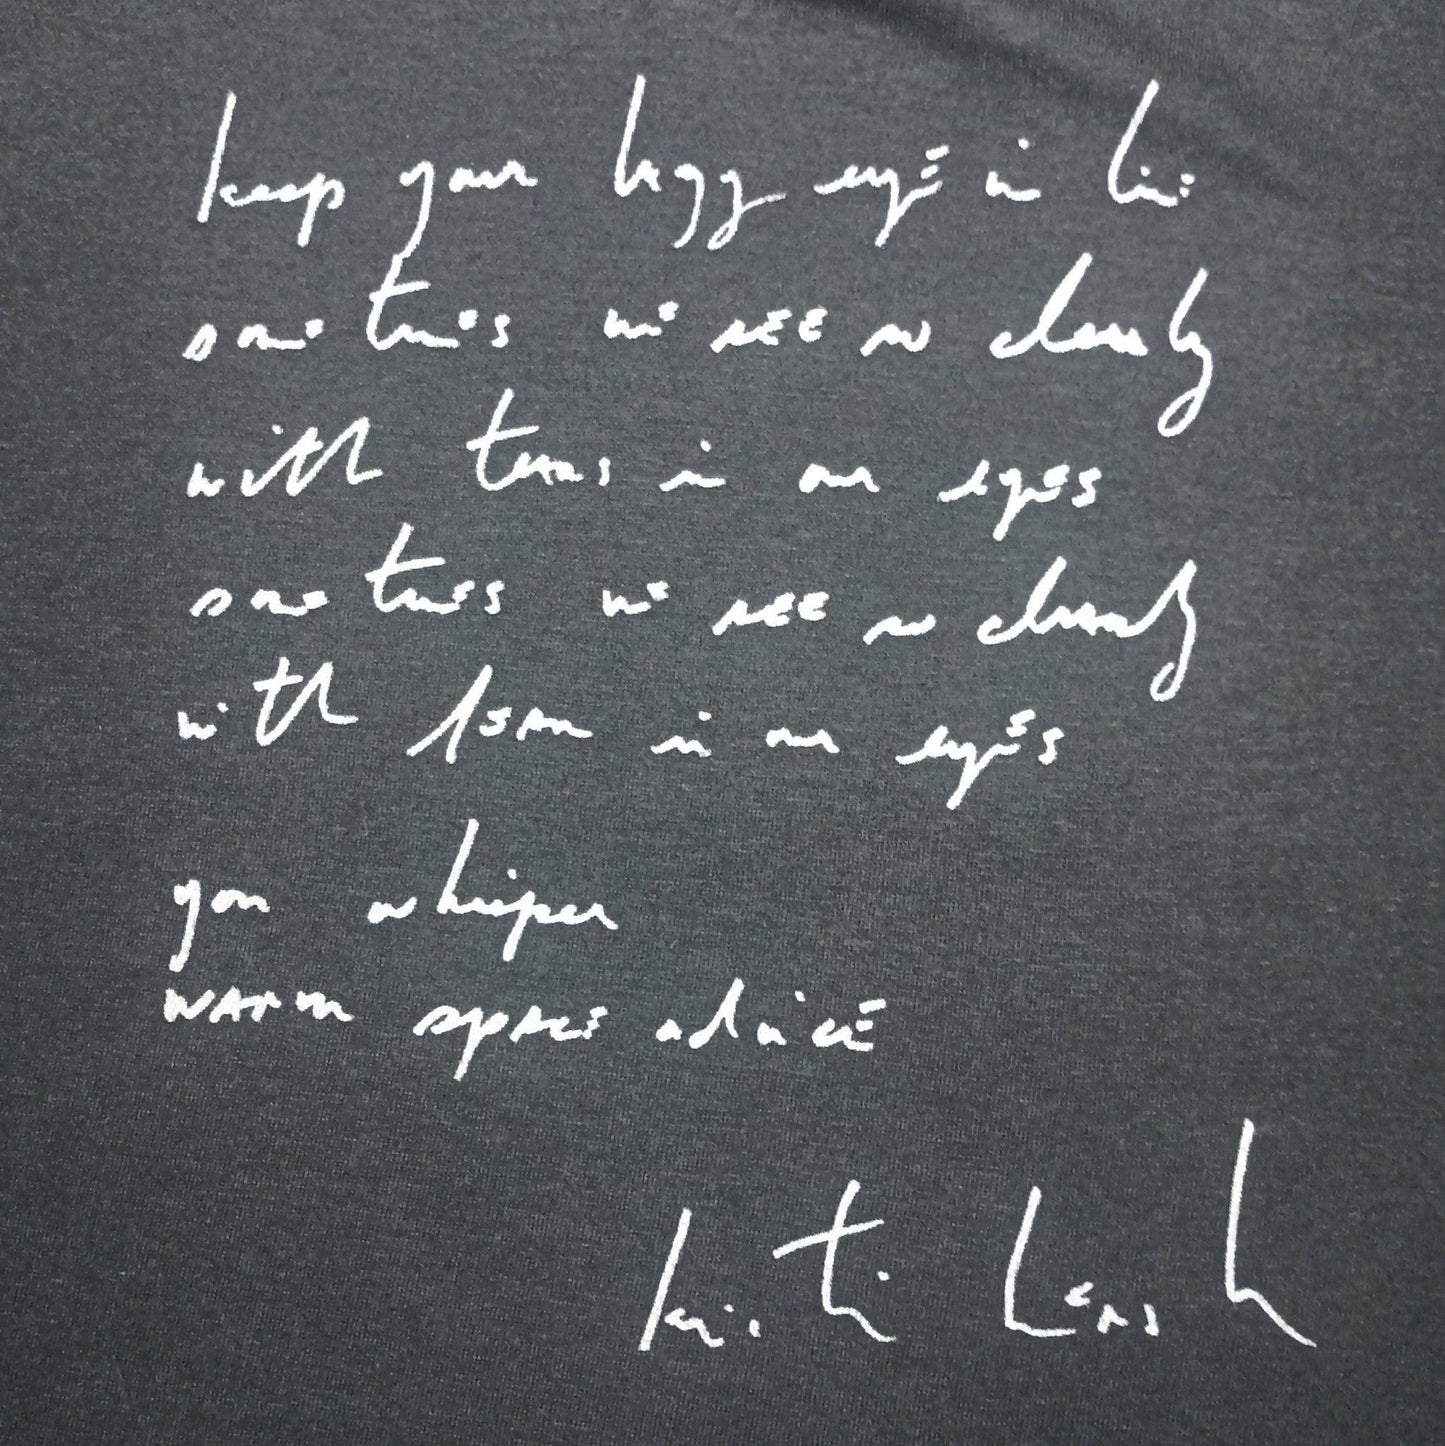 keep your lazy eye in line
sometimes we see so clearly
with tears in our eyes
sometimes we see so clearly
with fear in our eyes
you whisper
warm space advice
kristin hersh